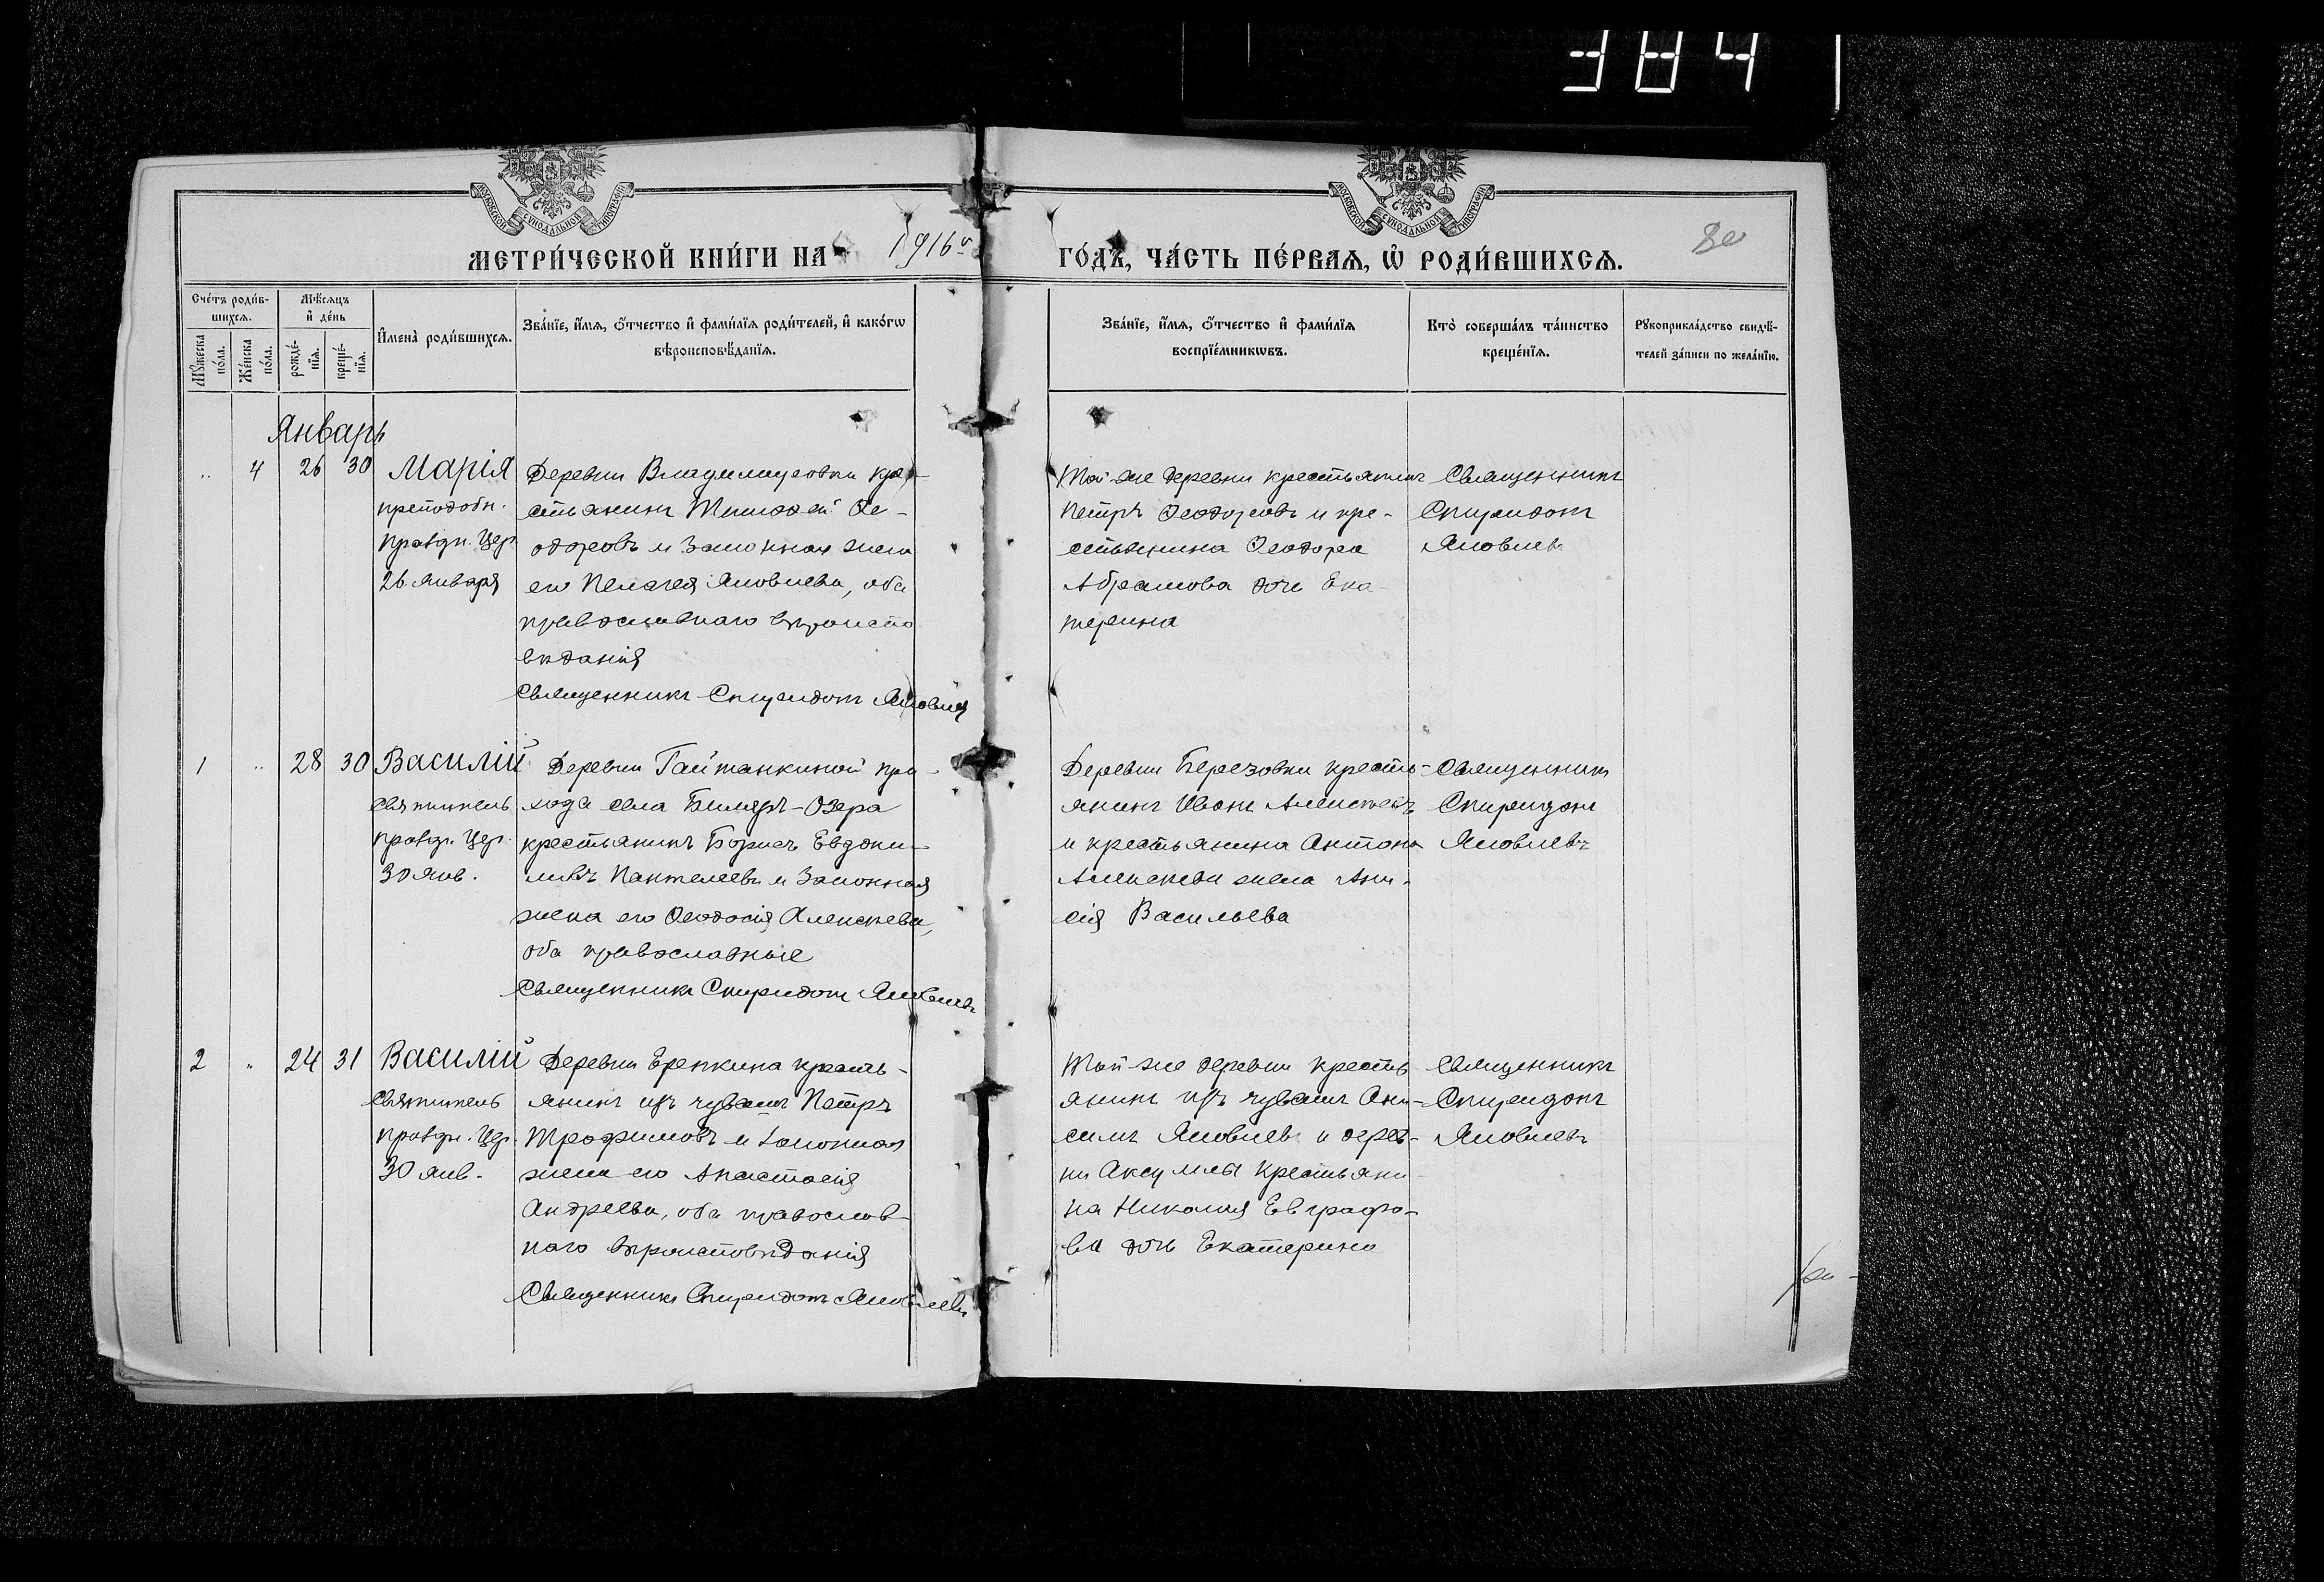 384
МОСКОВСКОЙ СѴНОДАЛЬНОЙ ТИПОГРАФІИ
МОСКОВСКОЙ СѴНОДАЛЬНОЙ ТИПОГРАФІИ
МЕТРИ́ЧЕСКОЙ КНИ́ГИ НА 1916й
ГО́ДЪ, ЧА́СТЬ ПЕ́РВАѦ, Ѡ҆ РОДИ́ВШИХСѦ.
Сче́тъ роди́в-
шихсѧ.
Мꙋ́жеска
по́ла.
Же́нска
по́ла.
Мѣ́сѧцъ
и҆ де́нь
рожде́-
нїѧ.
креще́-
нїѧ.
И҆мена̀ роди́вшихсѧ.
Зва́нїе, и҆́мѧ, ѻ҆́тчество и҆ фами́лїѧ роди́телей, и҆ како́гѡ
вѣроисповѣ́данїѧ.
Зва́нїе, и҆́мѧ, ѻ҆́тчество и҆ фами́лїѧ
воспрїе́мникѡвъ.
Кто̀ соверша́лъ та́инство
креще́нїѧ.
Рꙋкоприкла́дство свидѣ́-
телей за́писи по жела́нїю.
Январь
.. 4 26 30 Марія
преподобн.
праздн. Цер.
26 января
Деревни Владимировки кре-
стьянинъ Тимофей Ѳе-
одоровъ и законная жена
его Пелагея Яковлева, оба
православнаго вѣроиспо
вѣданія
Священникъ Спиридонъ Яковлев
Той-же деревни крестьянинъ
Петръ Ѳеодоровъ и кре-
стьянина Ѳеодора
Абрамова дочь Ека-
терина
Священникъ
Спиридонъ
Яковлевъ
1 .. 28 30 Василій
Святитель
праздн. Цер.
30 янв.
Деревни Гайтанкиной при-
хода села Биляръ-Озера
крестьянинъ Борисъ Евдоки-
мовъ Пантелеевъ и законная
жена его Ѳеодосія Алексѣева,
оба православные
Священникъ Спиридонъ Яковлевъ
Деревни Березовки кресть-
янинъ Иванъ Алексѣевъ
и крестьянина Антона
Алексѣева жена Ани-
сія Васильева
Священникъ
Спиридонъ
Яковлевъ
2 .. 24 31 Василій
Святитель
праздн. Цер.
30 янв.
Деревни Ерепкина кресть-
янинъ изъ чувашъ Петръ
Трофимовъ и законная
жена его Анастасія
Андреева, оба православ-
наго вѣроисповѣданія
Священникъ Спиридонъ Яковлевъ
Той-же деревни кресть
янинъ изъ чувашъ Ани-
симъ Яковлевъ и дерев-
ни Аксумлы крестьяни
на Николая Евграфо-
ва дочь Екатерина
Священникъ
Спиридонъ
Яковлевъ